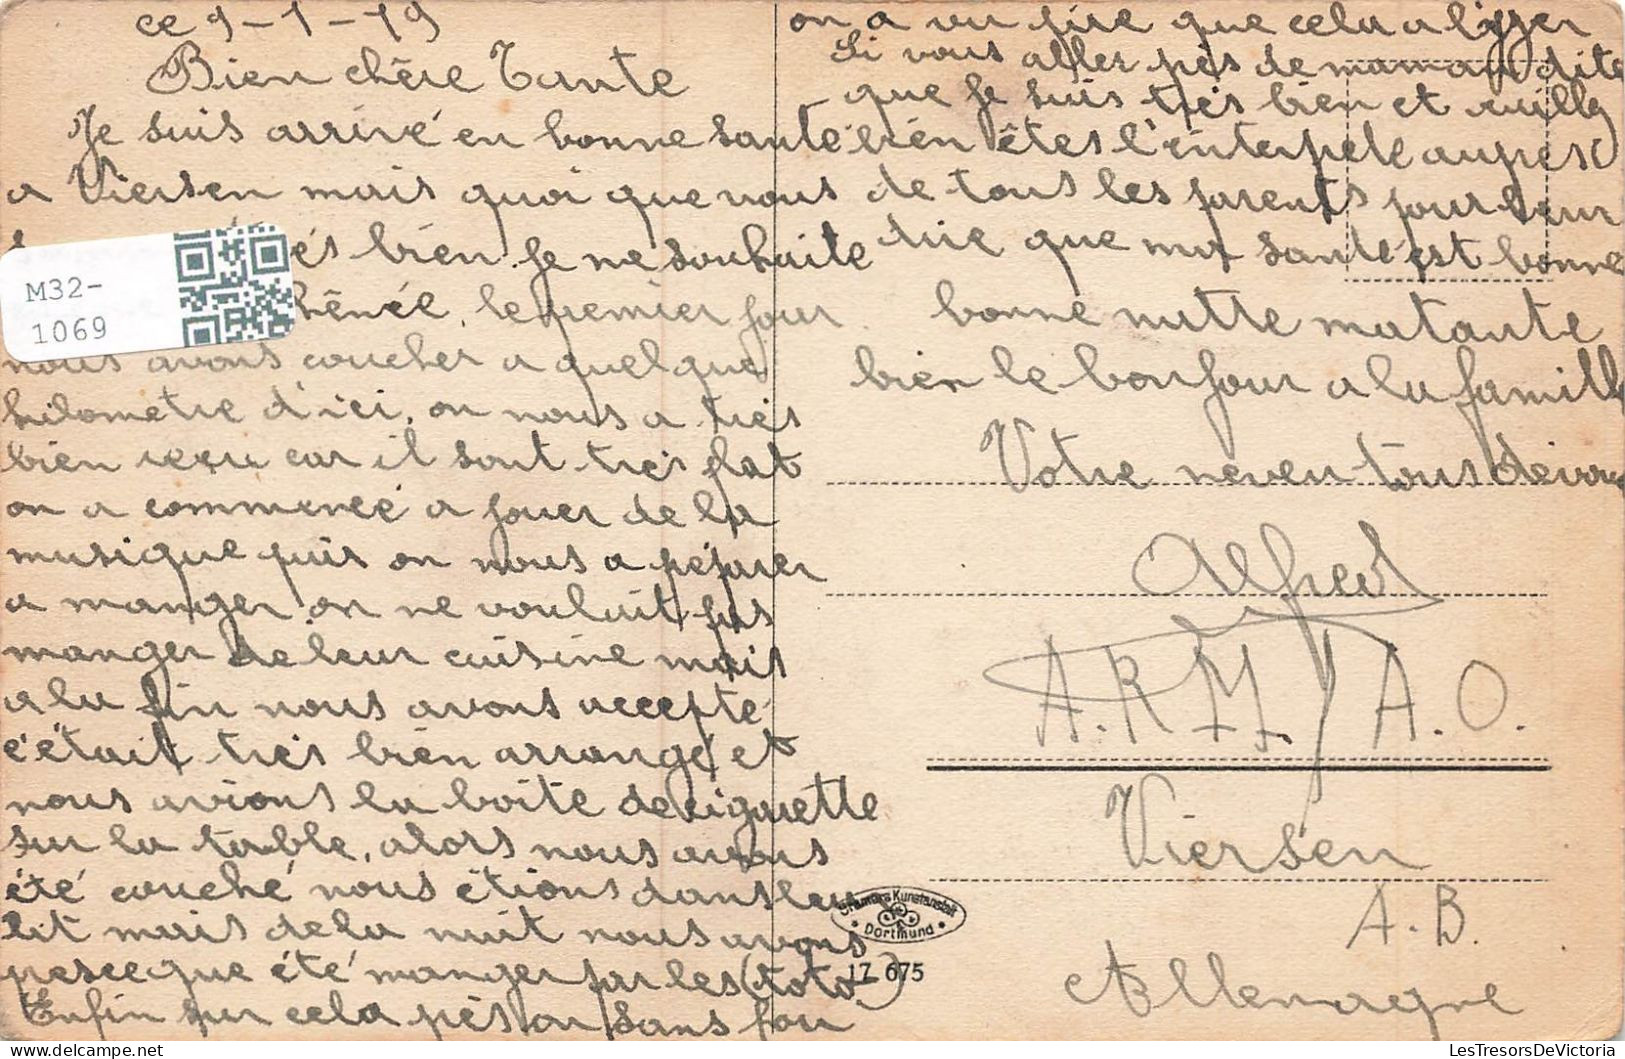 ce 9-1-19
Bien chère Tante
Je suis arrivé en bonne santé
a Viersen mais quoi que nous
és bien je ne souhaite
hênée, le premier jour
nous avons coucher a quelque
kilometre d'ici, on nous a très
bien reçu car il sont très flat
on a commencé a jouer de la
musique puis on nous a préparer
a manger on ne voulait pas
manger de leur cuisine mais
a la fin nous avons accepté
c'était très bien arrangé et
nous avions la boite de cigarette
sur la table, alors nous avons
été couché nous étions dans leur
lit mais de la nuit nous avons
presceque été manger par les (toto)
Enfin sur cela
on a vu
que cela
Si vous aller près de maman dite
que je suis très bien et
bien êtes l'interpele aupres
de tous les parents pour leur
dire que ma santé est bonne
bonne mutte ma tante
bien le bonjour a la famille
Votre neveu tous
Alfred
A.R.M. A.O.
Viersen
A.B.
Allemagne
Cramers Kunstanstalt
Dortmund
17 675
M32-
1069
LesTresorsDeVictoria